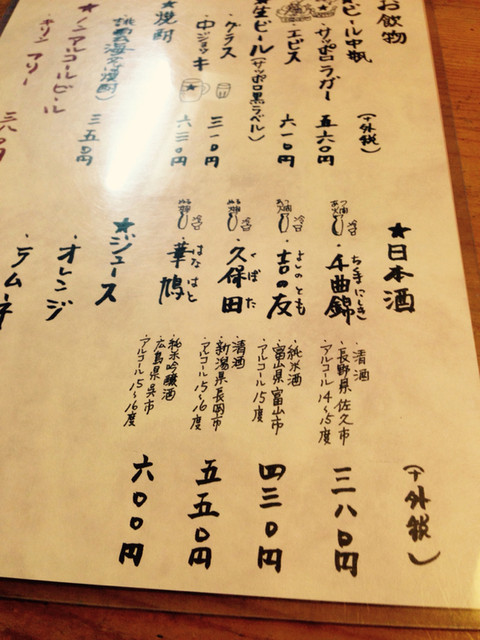 お飲物
(+外税)
★ビール中瓶
サッポロラガー 五六〇円
エビス 六一〇円
★生ビール(サッポロ黒ラベル)
グラス 三一〇円
中ジョッキ 六三〇円
★焼酎
三五〇円
★ノンアルコールビール
キリンフリー 三八〇円
★日本酒
(+外税)
冷 ・千曲錦 ちくまにしき
・清酒
・長野県佐久市
・アルコール14〜15度
三八〇円
冷 ・吉の友 よしのとも
・純米酒
・富山県富山市
・アルコール15度
四三〇円
冷 ・久保田 くぼた
・清酒
・新潟県長岡市
・アルコール15〜16度
五五〇円
冷 ・華鳩 はなはと
・純米吟醸酒
・広島県呉市
・アルコール15〜16度
六〇〇円
★ジュース
・オレンジ
・ラムネ